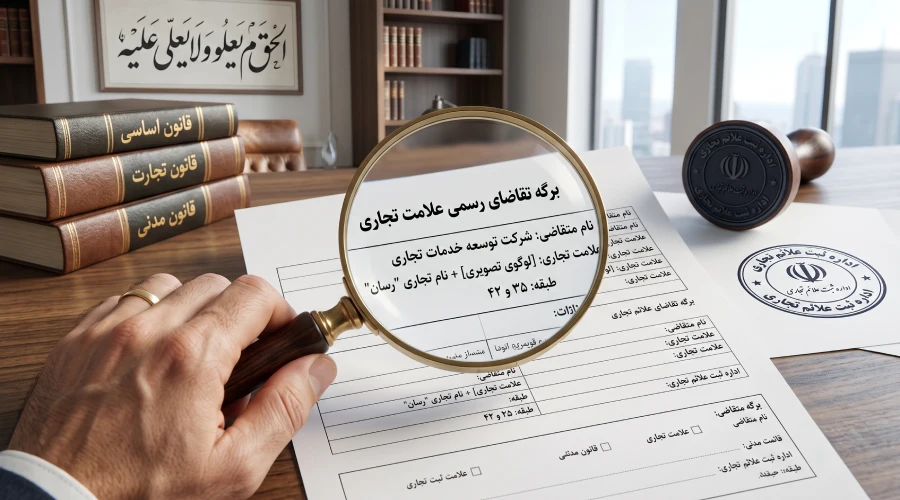 الحق یعلو ولا یعلی علیه
قانون اساسی
قانون تجارت
قانون مدنی
برگه تقاضای رسمی علامت تجاری
نام متقاضی: شرکت توسعه خدمات تجاری
علامت تجاری: [لوگوی تصویری] + نام تجاری "رسان"
طبقه: ۳۵ و ۴۲
نام متقاضی:
علامت تجاری:
علامت تجاری:
برگه تقاضای علائم تجاری
نام متقاضی:
علامت تجاری:
علامت تجاری:
اداره ثبت علائم تجاری:
علامت تجاری] + نام تجاری "رسان"
طبقه: ۲۵ و ۴۲
برگه متقاضی:
نام متقاضی
علامت تجاری
قانون مدنی
علامت ثبت تجاری
اداره ثبت علائم تجاری:
اداره ثبت علائم تجاری
اداره ثبت علائم تجاری
اداره ثبت علائم تجاری